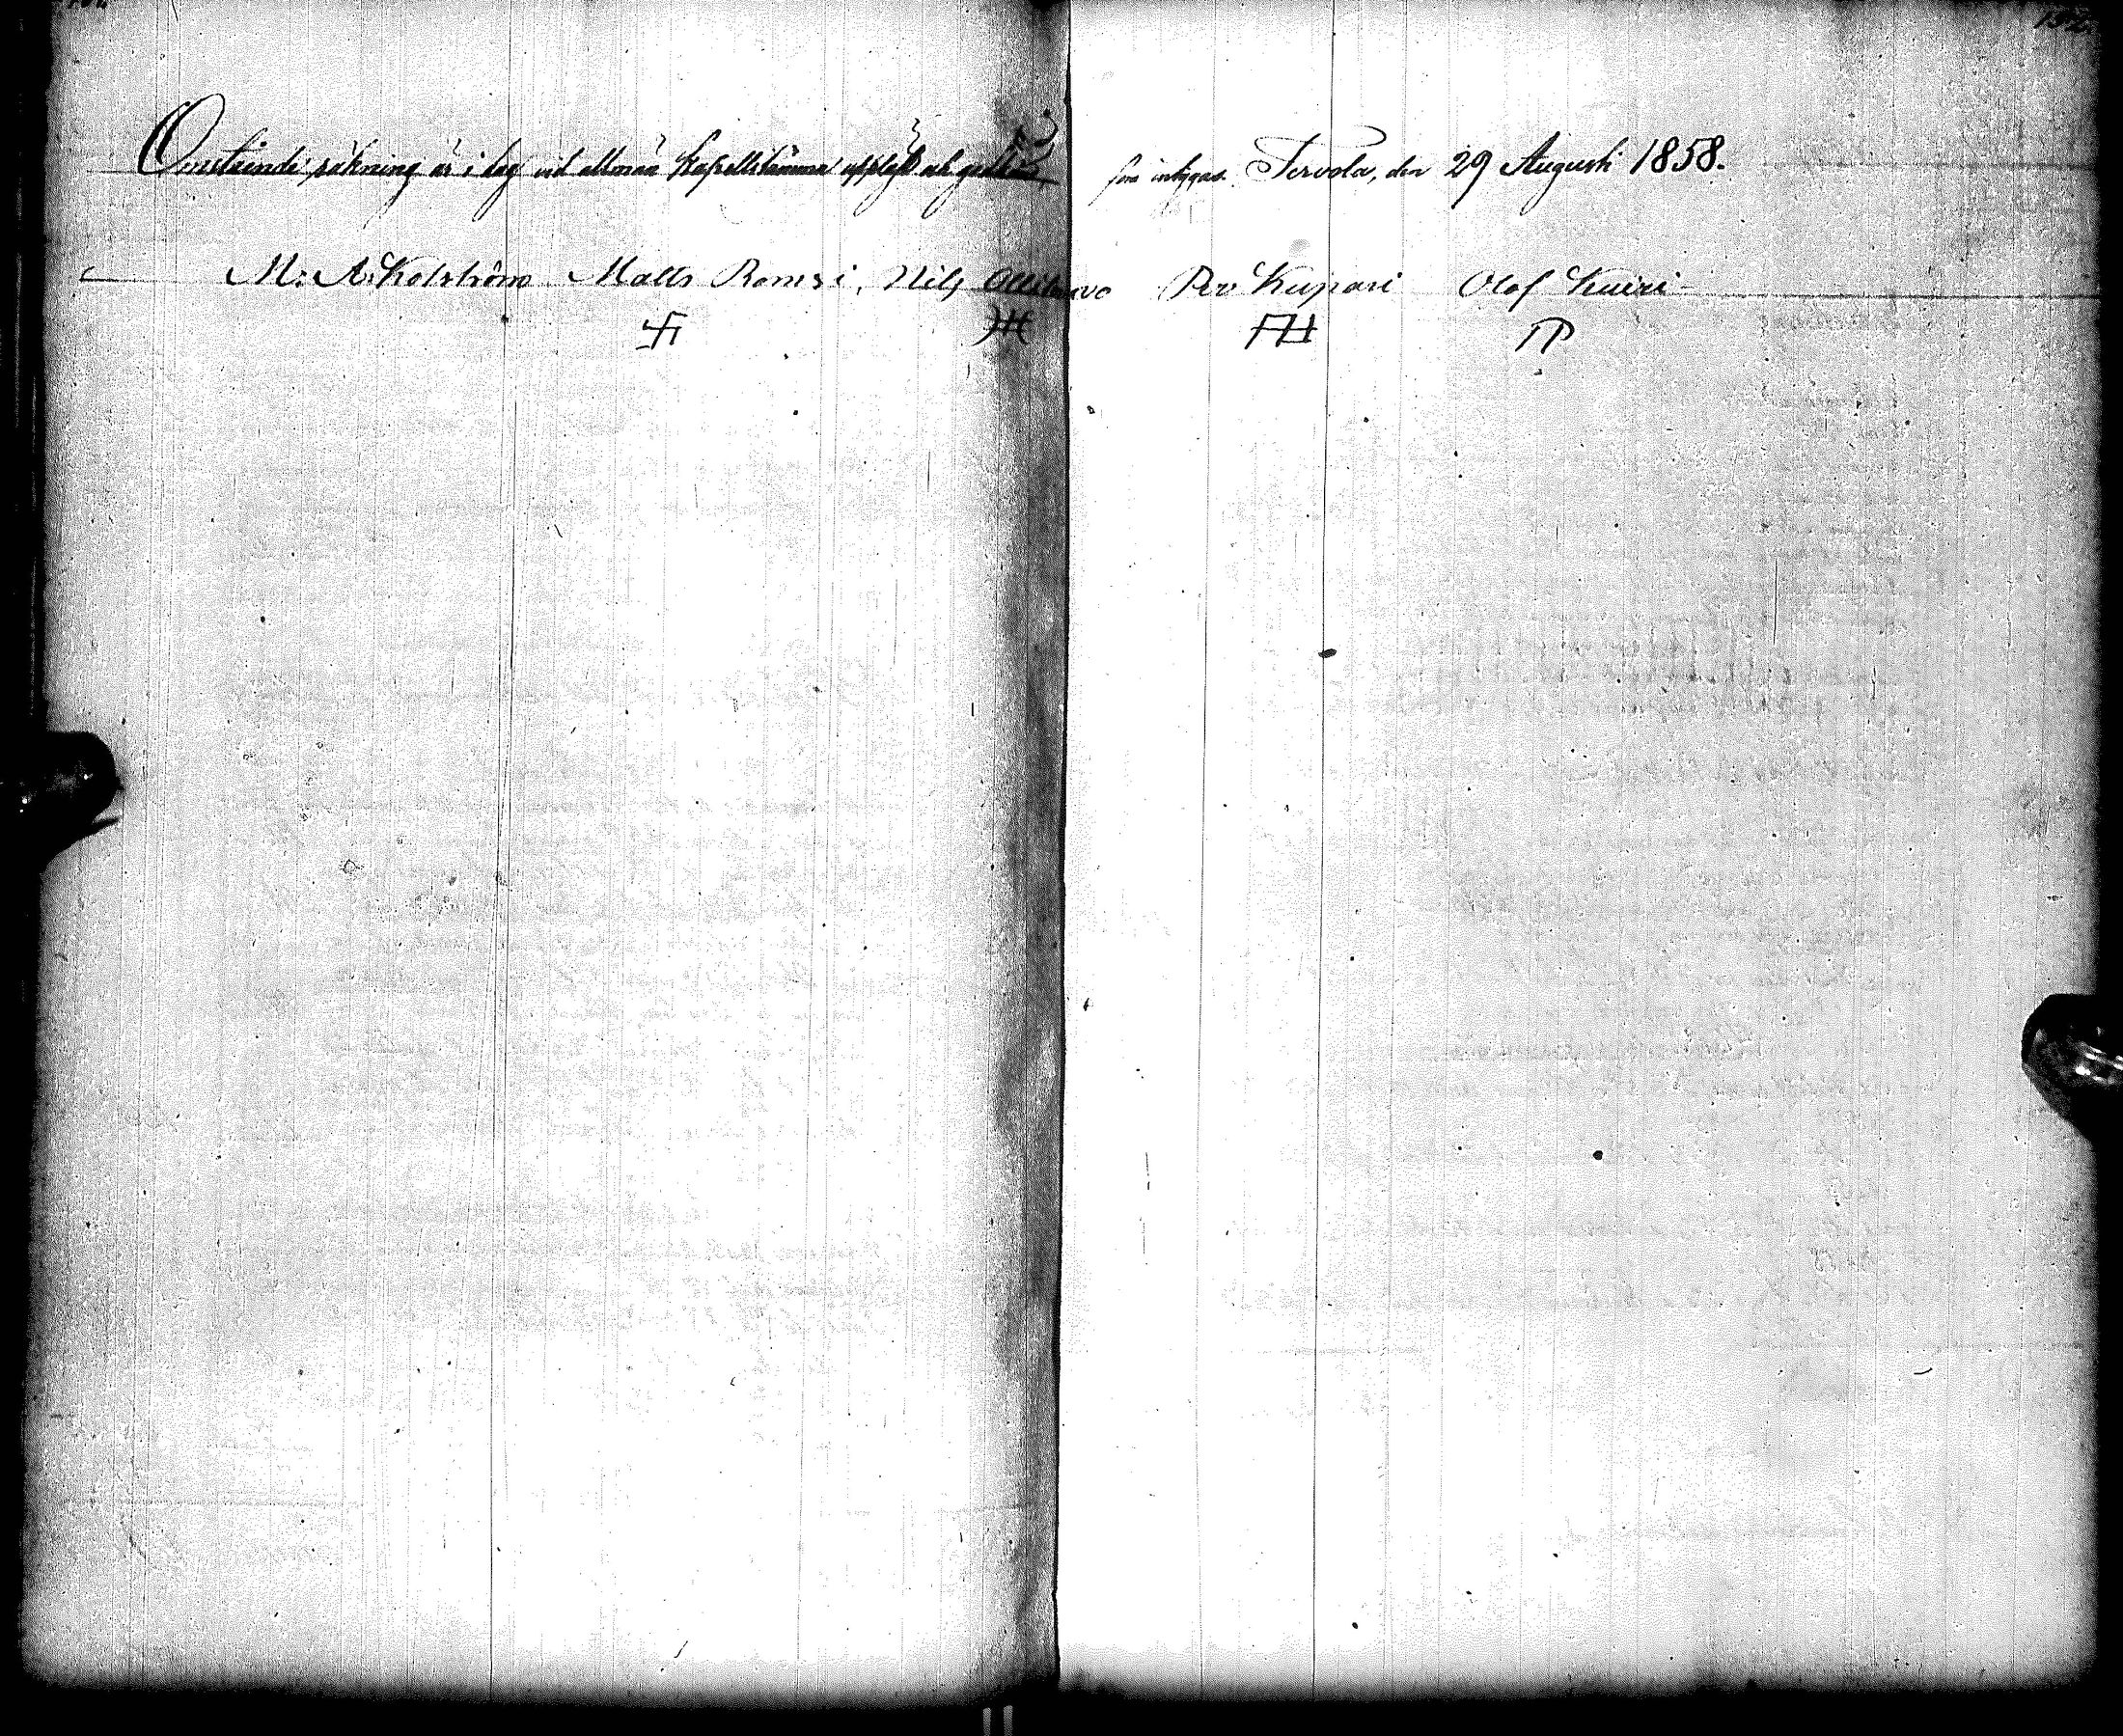 Omstående räkning är i dag vid allmän Kapellstämma uppläst och godkänd, som intygas. Tervola, den 29 Augusti 1858.
M: A: Kolström Matts Romsi, Nils Ollitervo Per Kupari Olof Kuiri